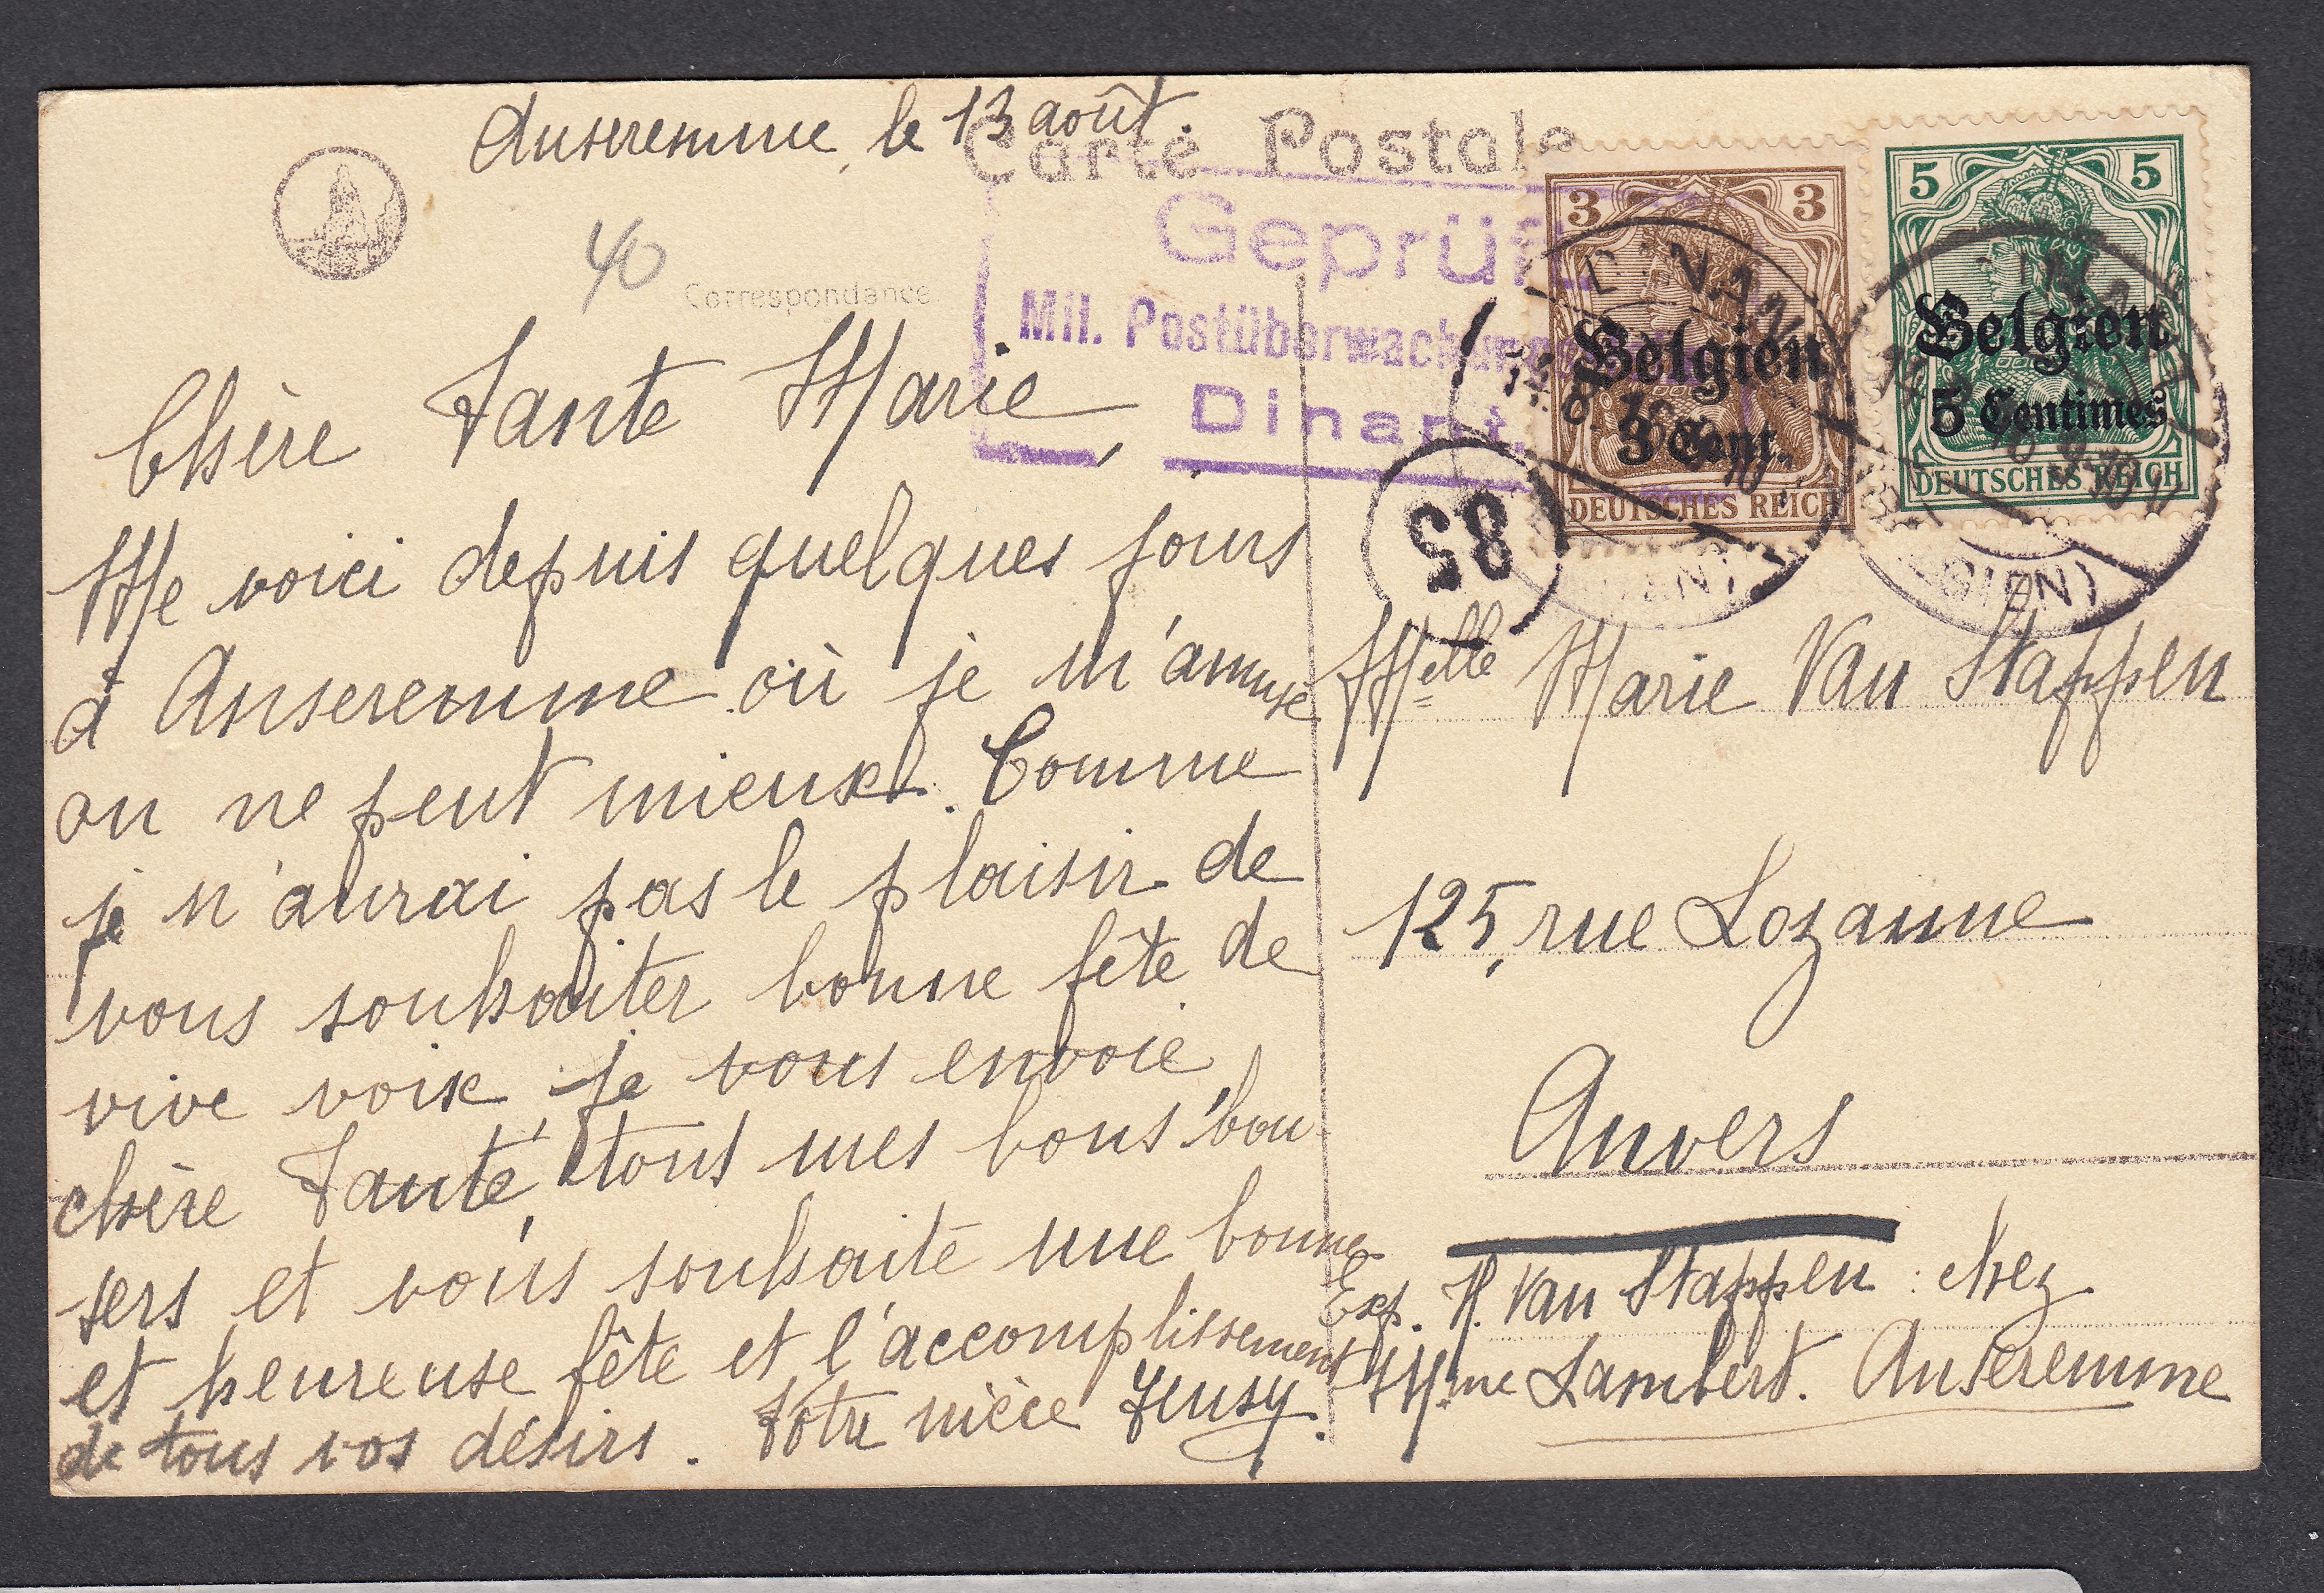 Anseremme, le 13 août.
Carte Postale
40
Correspondance
Geprüft
Mil. Postüberwachungs
Dinant.
3 3
Belgien
3 Cent.
DEUTSCHES REICH
5 5
Belgien
5 Centimes
DEUTSCHES REICH
DINANT
85
Chère Tante Marie,
Me voici depuis quelques jours
à Anseremme où je m'amuse
on ne peut mieux. Comme
je n'aurai pas le plaisir de
vous souhaiter bonne fête de
vive voix je vous envoie,
chère Tante, tous mes bons bai-
sers et vous souhaite une bonne
et heureuse fête et l'accomplissement
de tous vos désirs. Votre nièce
Melle Marie Van Stappen
125, rue Lozanne
Anvers
Exp. H. Van Stappen : chez
Mme Lambert. Anseremme